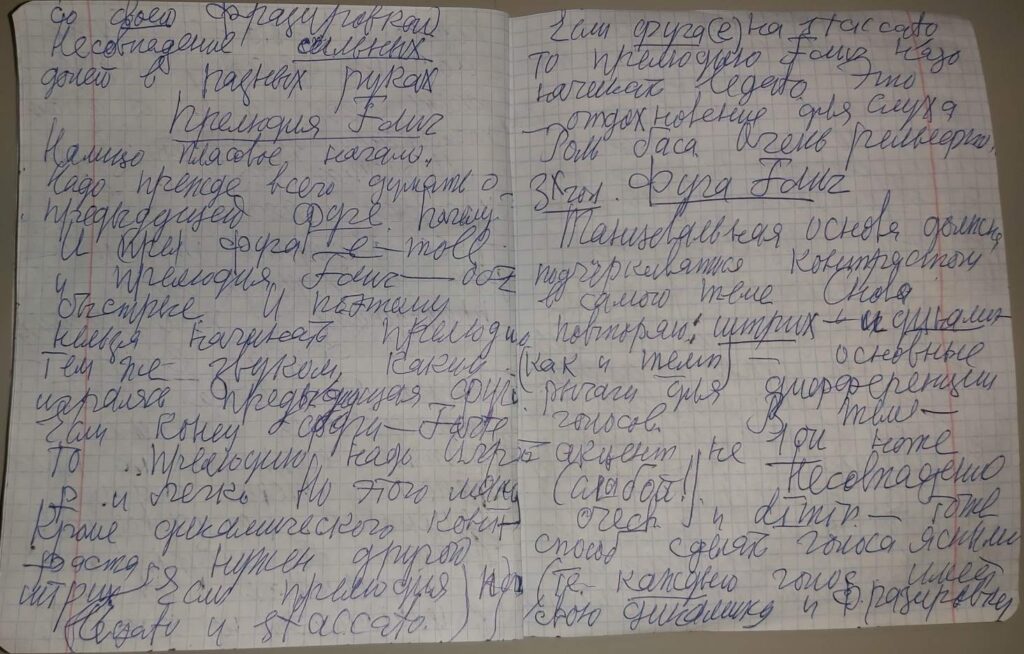 со своей фразировкой
Несовпадение сильных
долей в разных руках
Прелюдия F dur
Налицо начало.
Надо прежде всего думать о
предыдущей фуге.
И фуга e-moll
и прелюдия F dur —
быстрые И поэтому
нельзя начинать прелюдию
тем же звуком, каким
игралась предыдущая фуга.
Если конец фуги — Forte
то прелюдию надо играть
p и легко Но этого мало
Кроме динамического конт-
раста нужен другой
штрих Если прелюдия
legato и staccato.
Если фуга (e) на staccato
то прелюдию F dur надо
начинать legato Это
отдохновение для слуха
Роль баса очень рельефно.
3х гол. Фуга F dur
Танцевальная основа должна
подчёркиваться контрастом
в самой теме Снова
повторяю: штрих и динами-
(как и темп) — основные
рычаги для дифференции
голосов. В теме —
акцент не на 1ой ноте
(слабой!) Несовпадение
cresc и dimin — тоже
способ сделать голоса ясными
(те каждый голос имеет
свою динамику и фразировку